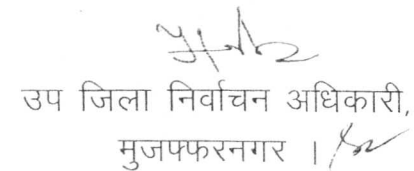 उप जिला निर्वाचन अधिकारी,
मुजफ्फरनगर ।